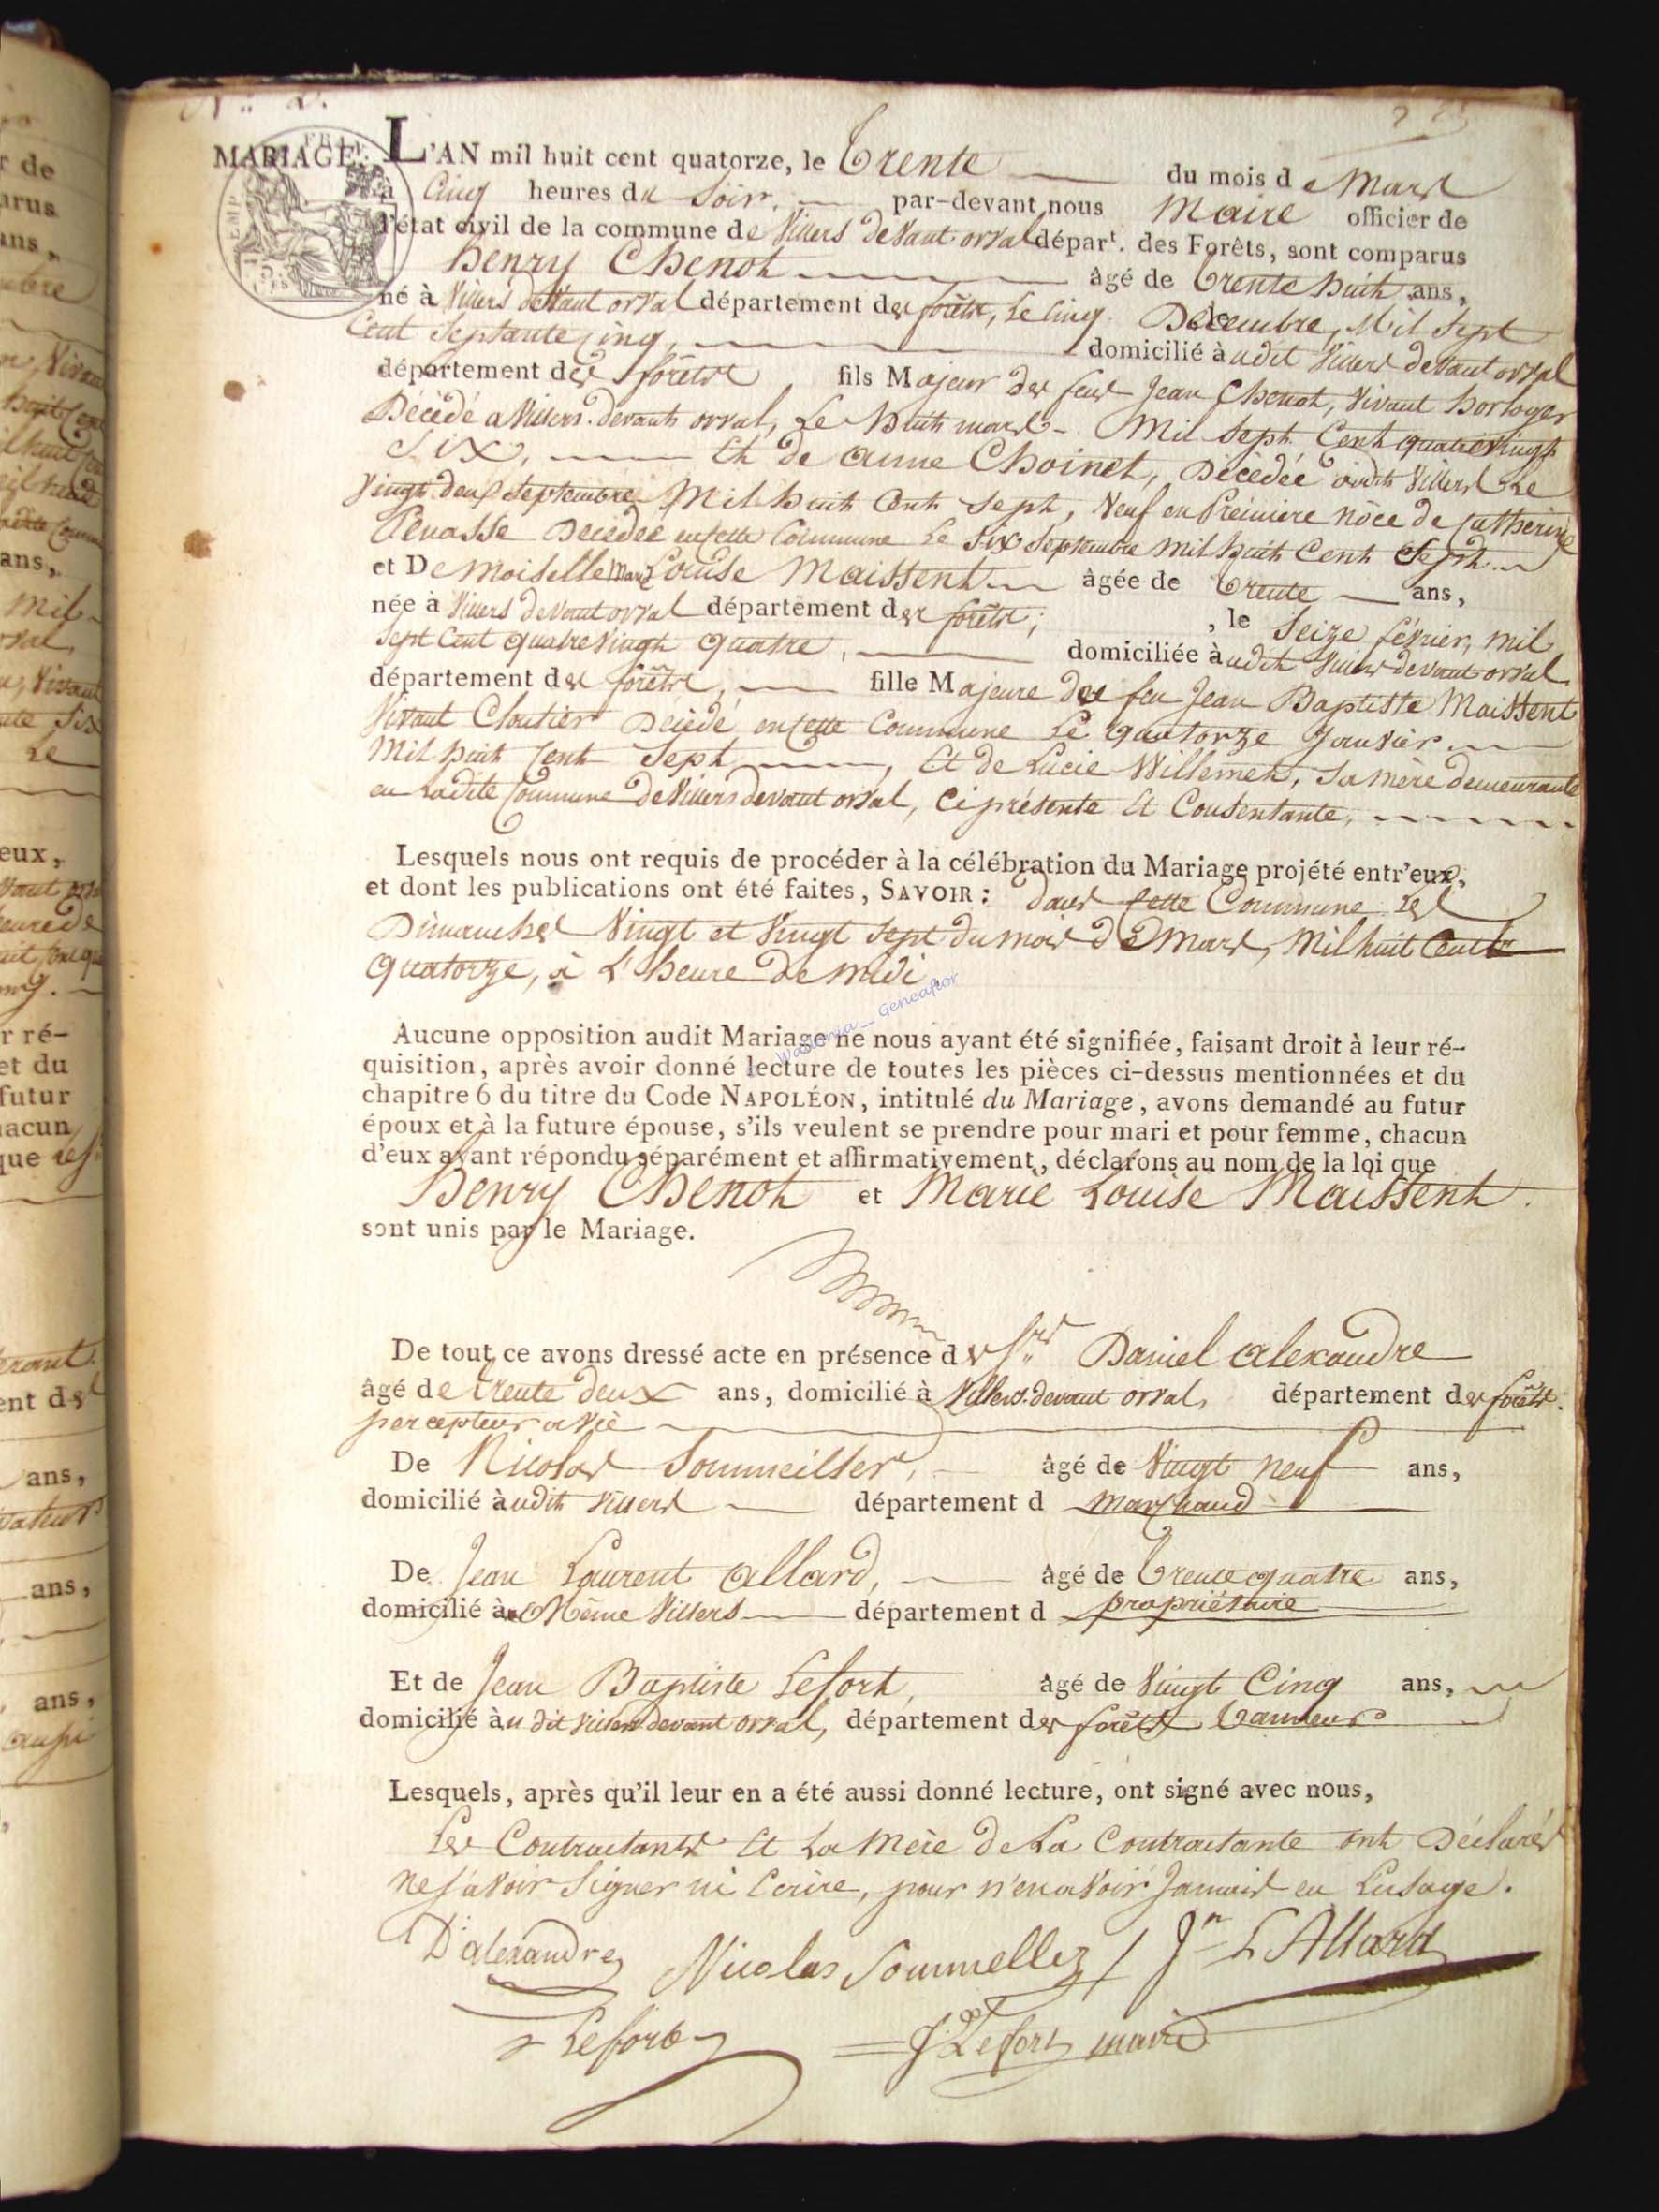 N° 2.
MARIAGE. L'AN mil huit cent quatorze, le Trente du mois de Mars
à Cinq heures du Soir, par-devant nous Maire officier de
l'état civil de la commune de Villers devant orval départ. des Forêts, sont comparus
henry Chenot âgé de trente huit ans,
né à Villers devant orval département des forêts, Le Cinq Décembre, Mil Sept
Cent Septante Cinq, domicilié audit Villers devant orval
département des forêts fils Majeur des feus Jean Chenot, Vivant horloger
Décédé a Villers devant orval, Le huit mars Mil Sept Cent quatrevingt
Six, Et de anne Choinet, Décédée audit Villers Le
Vingt deux Septembre Mil huit Cent Sept, Veuf en Première nôce de Catherine
Décédée en cette Commune Le Six Septembre Mil huit Cent Sept
et Demoiselle Marie Louise Maissent âgée de trente ans,
née à Villers devant orval département des forêts; , le Seize février, mil
Sept Cent quatre Vingt quatre, domiciliée audit Villers devant orval
département des forêts, fille Majeure de feu Jean Baptiste Maissent
Vivant Cloutier Décédé en cette Commune Le quatorze Janvier
Mil huit Cent Sept, Et de Lucie Willemet, Sa mère demeurante
en Ladite Commune de Villers devant orval, Ci présente Et Consentante,
Lesquels nous ont requis de procéder à la célébration du Mariage projété entr'eux,
et dont les publications ont été faites, SAVOIR : dans Cette Commune Les
Dimanches Vingt et Vingt Sept du mois de Mars, Mil huit Cent
quatorze, à L'heure de midi.
Wallonia -- Geneaflor
Aucune opposition audit Mariage ne nous ayant été signifiée, faisant droit à leur ré-
quisition, après avoir donné lecture de toutes les pièces ci-dessus mentionnées et du
chapitre 6 du titre du Code NAPOLÉON, intitulé du Mariage, avons demandé au futur
époux et à la future épouse, s'ils veulent se prendre pour mari et pour femme, chacun
d'eux ayant répondu séparément et affirmativement, déclarons au nom de la loi que
Henry Chenot et Marie Louise Maissent.
sont unis par le Mariage.
De tout ce avons dressé acte en présence des Srs Daniel alexandre
âgé de trente deux ans, domicilié à Villers devant orval, département des forêts.
percepteur a vie
De Nicolas Sommeiller, âgé de Vingt neuf ans,
domicilié audit Villers département d marchand
De Jean Laurent allard, âgé de trente quatre ans,
domicilié à Même Villers département d propriétaire
Et de Jean Baptiste Lefort, âgé de Vingt Cinq ans,
domicilié au dit Villers devant orval, département des forêts tanneur
Lesquels, après qu'il leur en a été aussi donné lecture, ont signé avec nous,
Les Contractants Et La Mère de La Contractante ont Déclarés
ne Savoir Signer ni Ecrire, pour n'en avoir Jamais eu L'usage.
D alexandre Nicolas Sommellez Jn L Allard
Lefort J Lefort maire